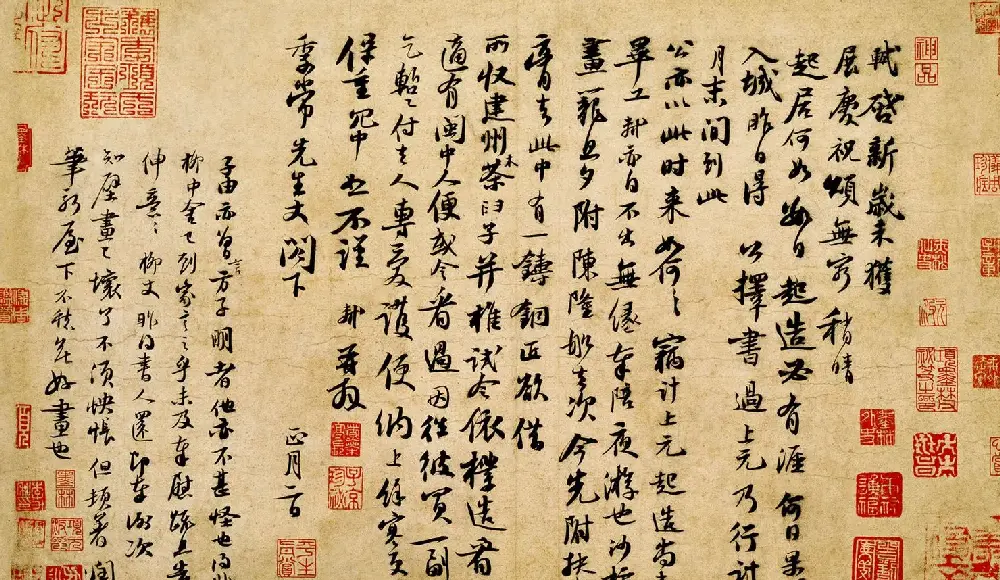 軾啓新歲未獲
展慶祝頌無窮稍晴
起居何如數日起造必有涯何日果
入城昨日得公擇書過上元乃行計
月末間到此
公亦以此时来如何〻竊計上元起造尚
畢工軾亦自不出無緣奉陪夜游也沙枋
畫籠旦夕附陳隆船去次今先附扶
膏去此中有一鑄銅匠欲借
所收建州木茶臼子并椎試令依樣造看
適有閩中人便或令看過因往彼買一副
乞暫付去人專愛護便納上餘寒更
保重冗中恕不謹軾再拜
季常先生丈閣下正月二日
子由亦曾言方子明者他亦不甚怪也得非
柳中舍已到家言之乎未及奉慰疏且告
伸意〻柳丈昨得書人還即奉謝次
知壁畫已壞了不須怏悵但頓著潤
筆新屋下不愁無好畫也